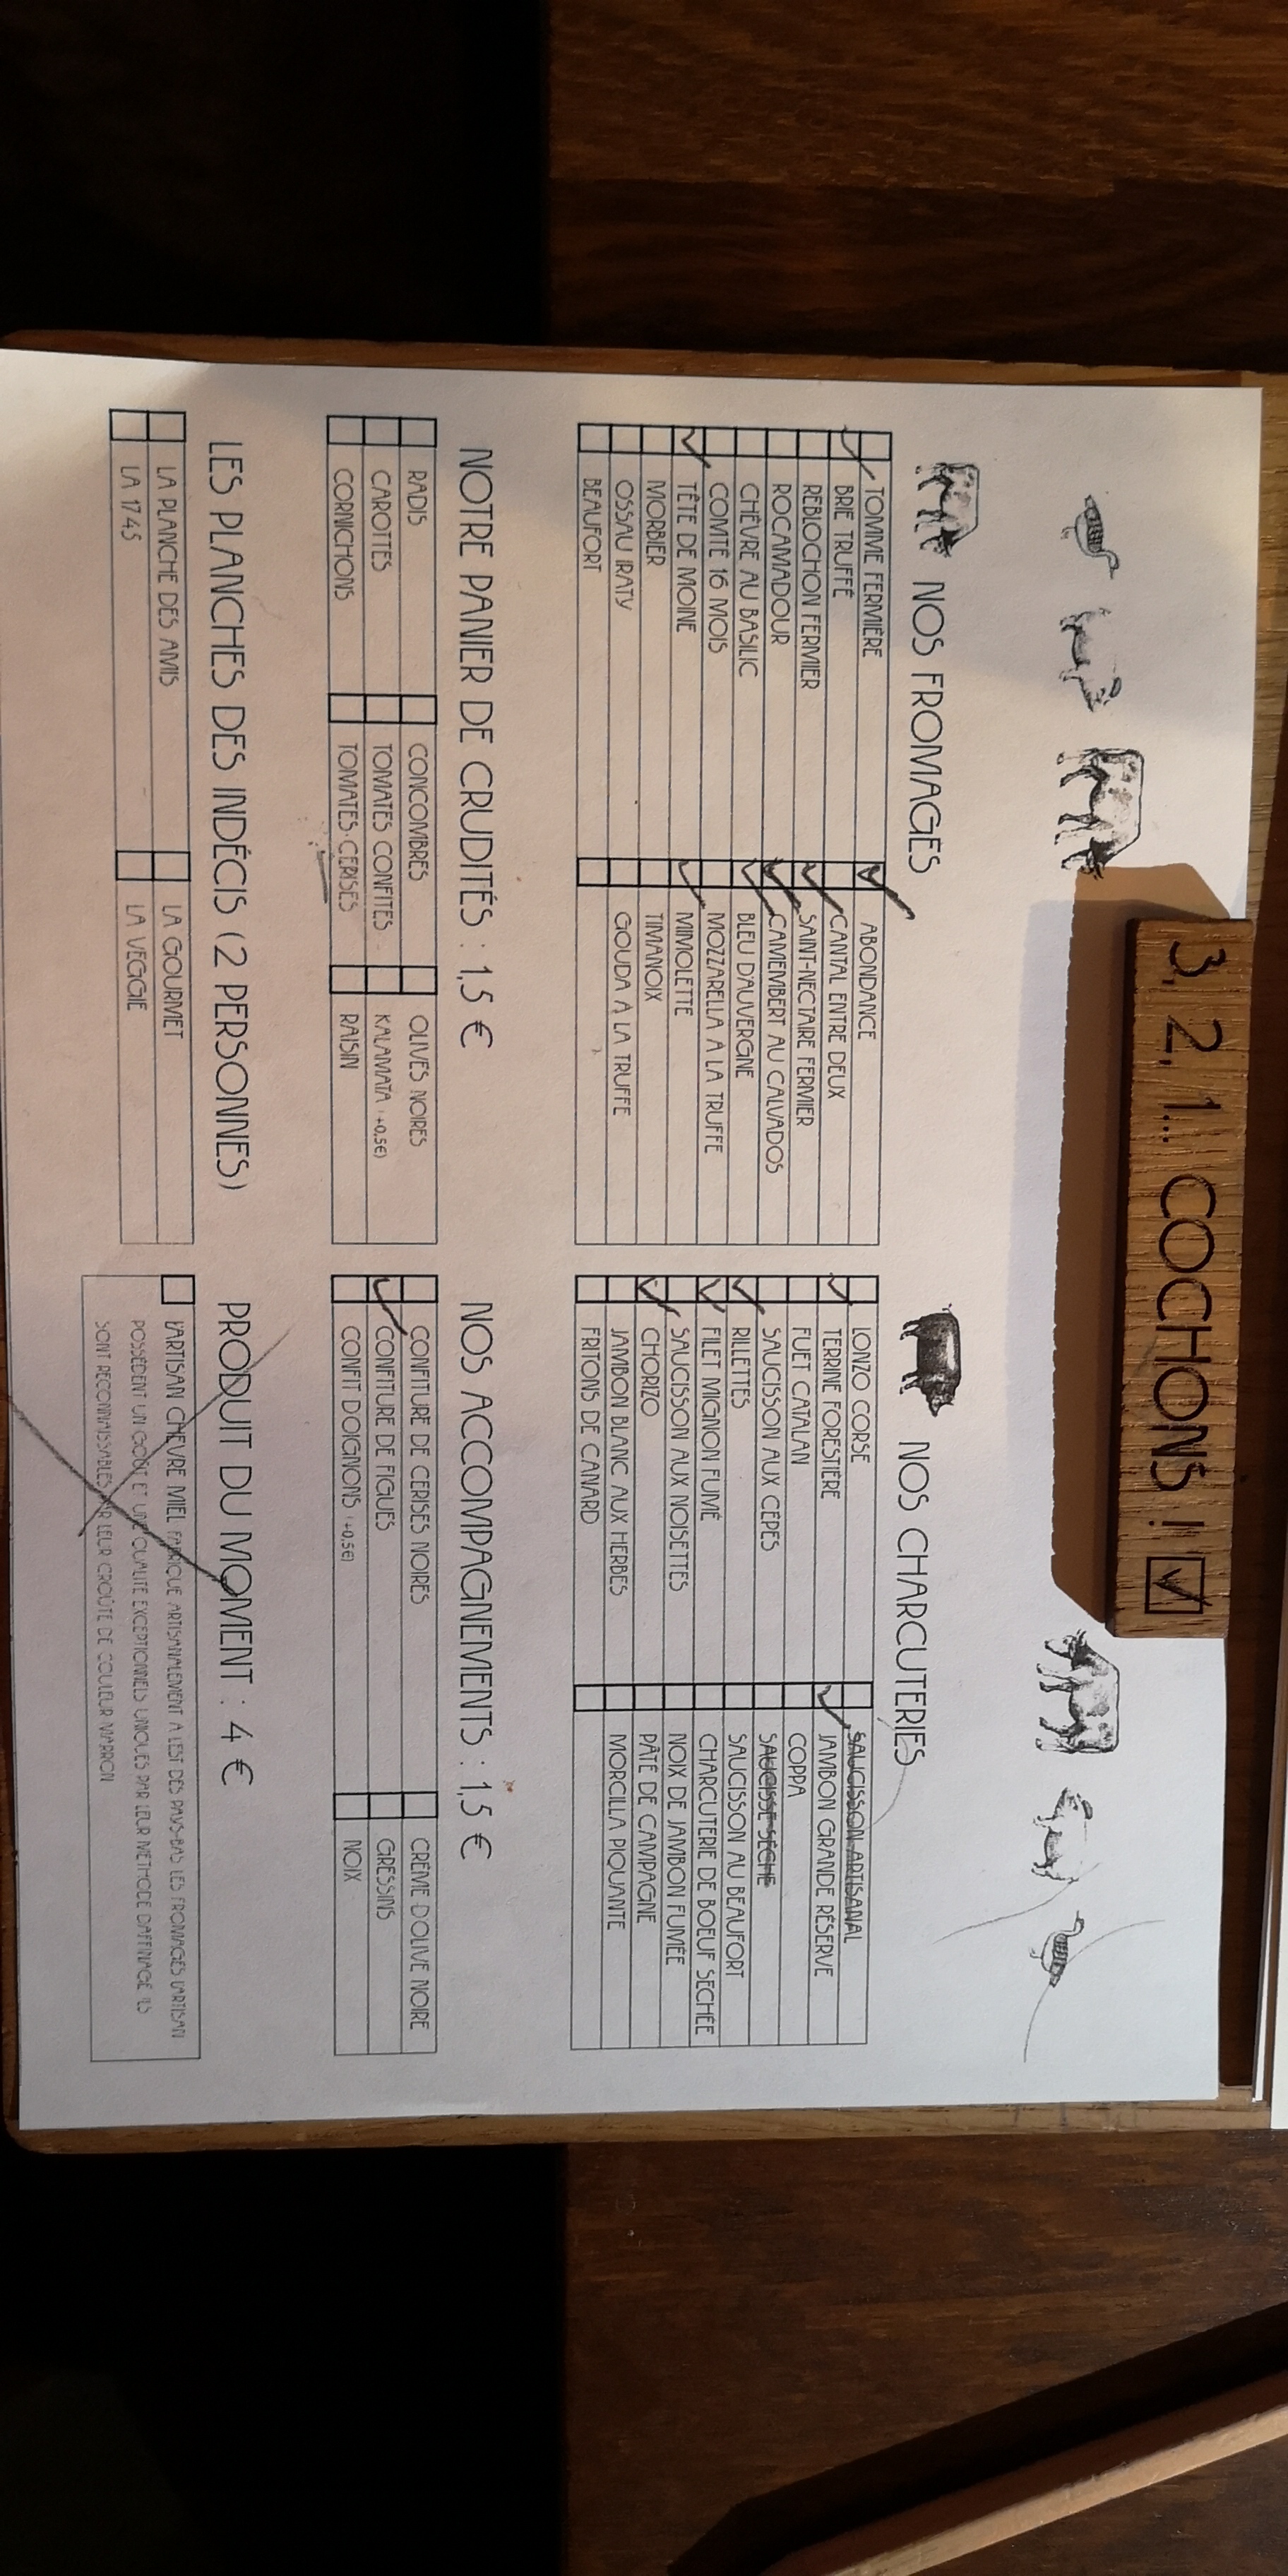 3, 2, 1... COCHONS !
NOS FROMAGES
TOMME FERMIÈRE
BRIE TRUFFÉ
REBLOCHON FERMIER
ROCAMADOUR
CHÈVRE AU BASILIC
COMTÉ 16 MOIS
TÊTE DE MOINE
MORBIER
OSSAU IRATY
BEAUFORT
ABONDANCE
CANTAL ENTRE DEUX
SAINT-NECTAIRE FERMIER
CAMEMBERT AU CALVADOS
BLEU D'AUVERGNE
MOZZARELLA À LA TRUFFE
MIMOLETTE
TIMANOIX
GOUDA À LA TRUFFE
NOS CHARCUTERIES
LONZO CORSE
TERRINE FORESTIÈRE
FUET CATALAN
SAUCISSON AUX CÈPES
RILLETTES
FILET MIGNON FUMÉ
SAUCISSON AUX NOISETTES
CHORIZO
JAMBON BLANC AUX HERBES
FRITONS DE CANARD
SAUCISSON ARTISANAL
JAMBON GRANDE RÉSERVE
COPPA
SAUCISSE SÈCHE
SAUCISSON AU BEAUFORT
CHARCUTERIE DE BOEUF SECHÉE
NOIX DE JAMBON FUMÉE
PÂTÉ DE CAMPAGNE
MORCILLA PIQUANTE
NOTRE PANIER DE CRUDITÉS : 1,5 €
RADIS
CAROTTES
CORNICHONS
CONCOMBRES
TOMATES CONFITES
TOMATES-CERISES
OLIVES NOIRES
KALAMATA (+0,5€)
RAISIN
NOS ACCOMPAGNEMENTS : 1,5 €
CONFITURE DE CERISES NOIRES
CONFITURE DE FIGUES
CONFIT D'OIGNONS (+0,5€)
CRÈME D'OLIVE NOIRE
GRESSINS
NOIX
LES PLANCHES DES INDÉCIS (2 PERSONNES)
LA PLANCHE DES AMIS
LA 1745
LA GOURMET
LA VEGGIE
PRODUIT DU MOMENT : 4 €
L'ARTISAN CHEVRE MIEL FABRIQUE ARTISANALEMENT A L'EST DES PAYS-BAS LES FROMAGES L'ARTISAN
POSSÈDENT UN GOÛT ET UNE QUALITE EXCEPTIONNELS UNIQUES PAR LEUR MÉTHODE D'AFFINAGE ILS
SONT RECONNAISSABLES PAR LEUR CROÛTE DE COULEUR MARRON